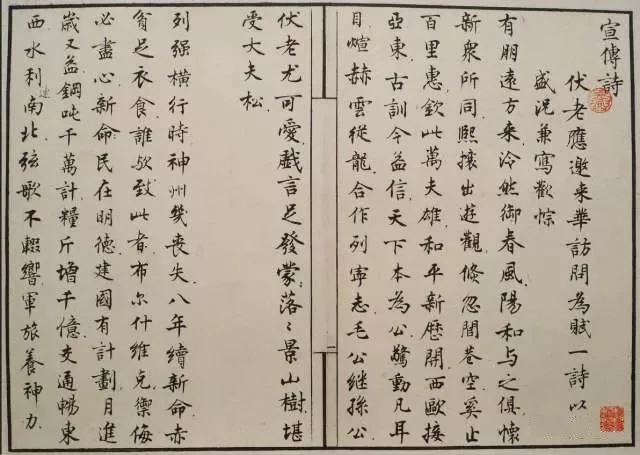 宣傳詩
伏老應邀来華訪問為賦一詩以
盛况兼寫歡悰
有朋遠方来泠然御春風陽和与之俱懷
新衆所同熙攘出遊觀倏忽閭巷空奚止
百里惠欽此萬夫雄和平新歷開西歐接
亞東古訓今益信天下本為公驚動凡耳
目煊赫雲從龍合作列寧志毛公继孫公
伏老尤可愛戲言足發蒙落〻景山樹堪
受大夫松
列强橫行時神州幾喪失八年續新命赤
貧足衣食誰歟致此者布尔什維克禦侮
必盡心新命民在明德建國有計劃月進
歲又益鋼吨千萬計糧斤增千億交通暢東
西水利達南北弦歌不輟響軍旅養神力